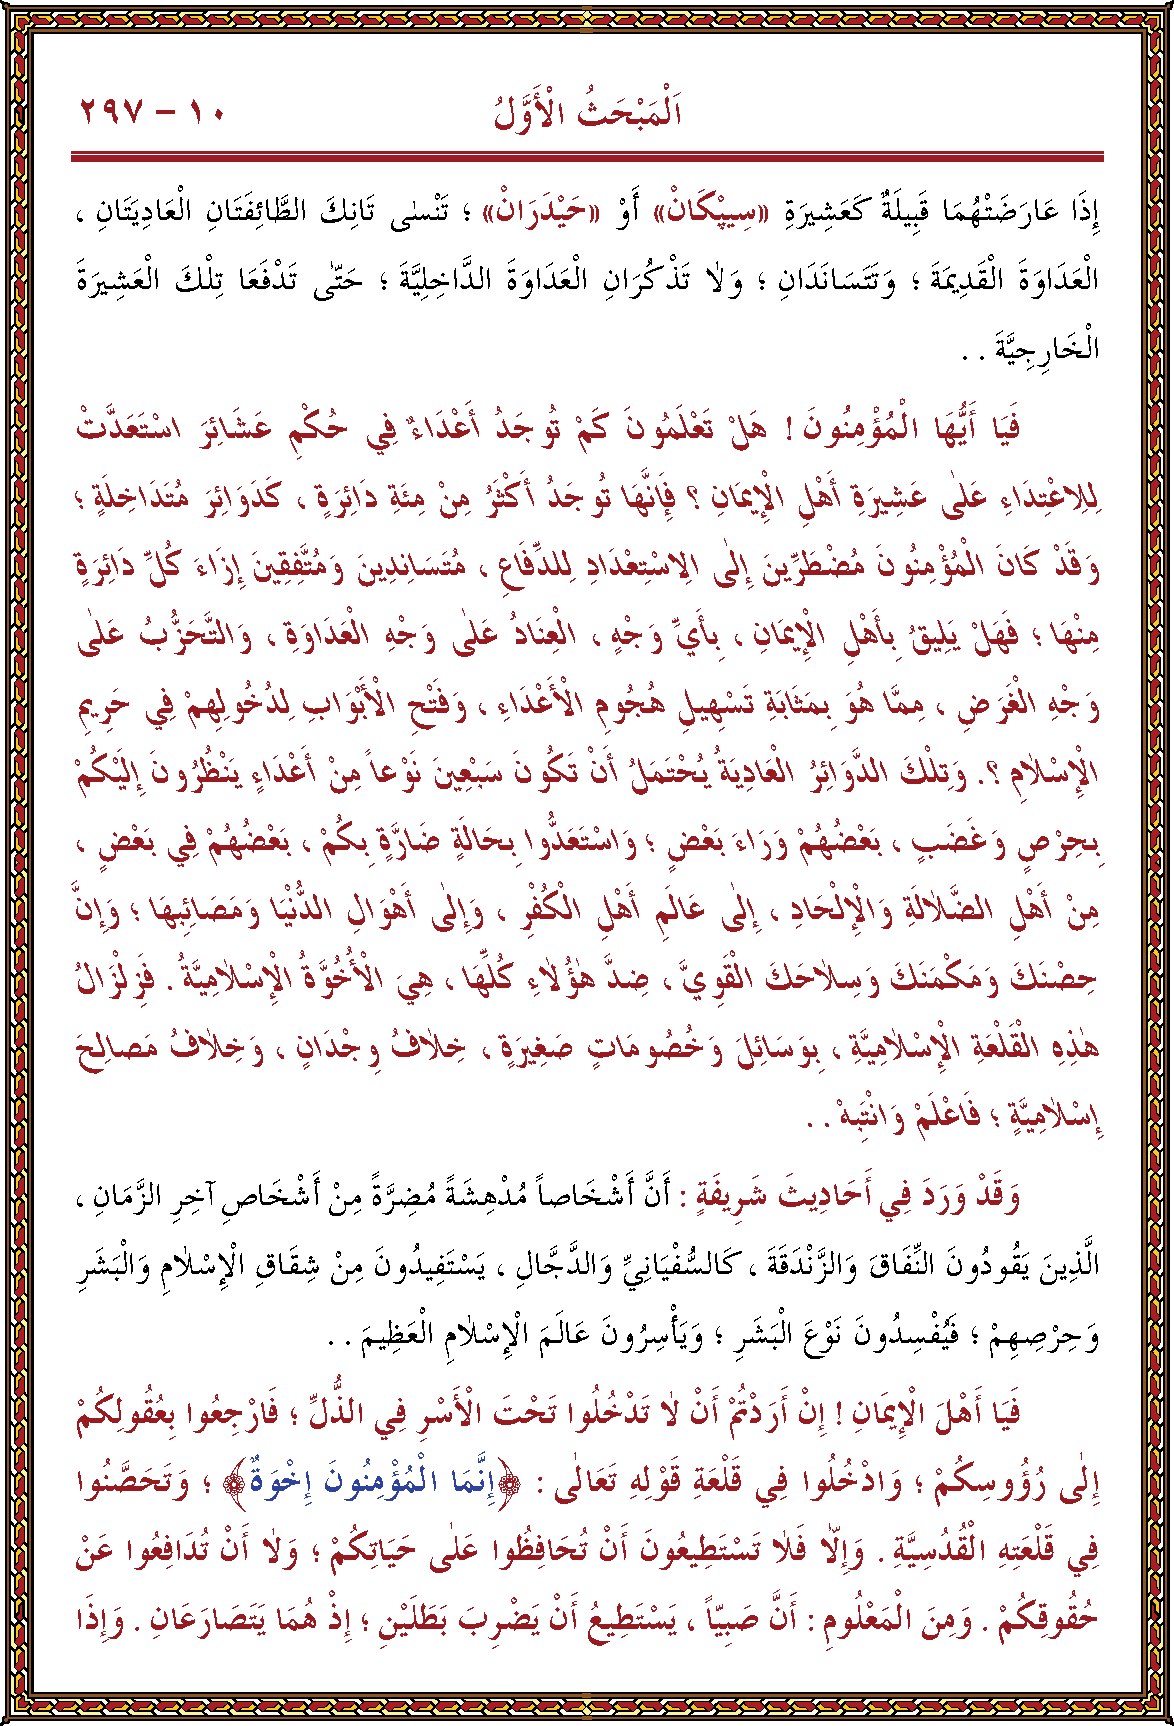 اَلْمَبْحَثُ الْأَوَّلُ ١٠ - ٢٩٧
إِذَا عَارَضَتْهُمَا قَبِيلَةٌ كَعَشِيرَةِ «سِيپْكَانْ» أَوْ «حَيْدَرَانْ» ؛ تَنْسٰى تَانِكَ الطَّائِفَتَانِ الْعَادِيَتَانِ ،
الْعَدَاوَةَ الْقَدِيمَةَ ؛ وَتَتَسَانَدَانِ ؛ وَلَا تَذْكُرَانِ الْعَدَاوَةَ الدَّاخِلِيَّةَ ؛ حَتّٰى تَدْفَعَا تِلْكَ الْعَشِيرَةَ
الْخَارِجِيَّةَ . .
فَيَا أَيُّهَا الْمُؤْمِنُونَ ! هَلْ تَعْلَمُونَ كَمْ تُوجَدُ أَعْدَاءٌ فِي حُكْمِ عَشَائِرَ اسْتَعَدَّتْ
لِلِاعْتِدَاءِ عَلٰى عَشِيرَةِ أَهْلِ الْإِيمَانِ ؟ فَإِنَّهَا تُوجَدُ أَكْثَرُ مِنْ مِئَةِ دَائِرَةٍ ، كَدَوَائِرَ مُتَدَاخِلَةٍ ؛
وَقَدْ كَانَ الْمُؤْمِنُونَ مُضْطَرِّينَ إِلٰى الِاسْتِعْدَادِ لِلدِّفَاعِ ، مُتَسَانِدِينَ وَمُتَّفِقِينَ إِزَاءَ كُلِّ دَائِرَةٍ
مِنْهَا ؛ فَهَلْ يَلِيقُ بِأَهْلِ الْإِيمَانِ ، بِأَيِّ وَجْهٍ ، الْعِنَادُ عَلٰى وَجْهِ الْعَدَاوَةِ ، وَالتَّحَزُّبُ عَلٰى
وَجْهِ الْغَرَضِ ، مِمَّا هُوَ بِمَثَابَةِ تَسْهِيلِ هُجُومِ الْأَعْدَاءِ ، وَفَتْحِ الْأَبْوَابِ لِدُخُولِهِمْ فِي حَرِيمِ
الْإِسْلَامِ ؟. وَتِلْكَ الدَّوَائِرُ الْعَادِيَةُ يُحْتَمَلُ أَنْ تَكُونَ سَبْعِينَ نَوْعاً مِنْ أَعْدَاءٍ يَنْظُرُونَ إِلَيْكُمْ
بِحِرْصٍ وَغَضَبٍ ، بَعْضُهُمْ وَرَاءَ بَعْضٍ ؛ وَاسْتَعَدُّوا بِحَالَةٍ ضَارَّةٍ بِكُمْ ، بَعْضُهُمْ فِي بَعْضٍ ،
مِنْ أَهْلِ الضَّلَالَةِ وَالْإِلْحَادِ ، إِلٰى عَالَمِ أَهْلِ الْكُفْرِ ، وَإِلٰى أَهْوَالِ الدُّنْيَا وَمَصَائِبِهَا ؛ وَإِنَّ
حِصْنَكَ وَمَكْمَنَكَ وَسِلَاحَكَ الْقَوِيَّ ، ضِدَّ هٰؤُلَاءِ كُلِّهَا ، هِيَ الْأُخُوَّةُ الْإِسْلَامِيَّةُ . فَزِلْزَالُ
هٰذِهِ الْقَلْعَةِ الْإِسْلَامِيَّةِ ، بِوَسَائِلَ وَخُصُومَاتٍ صَغِيرَةٍ ، خِلَافُ وِجْدَانٍ ، وَخِلَافُ مَصَالِحَ
إِسْلَامِيَّةٍ ؛ فَاعْلَمْ وَانْتَبِهْ . .
وَقَدْ وَرَدَ فِي أَحَادِيثَ شَرِيفَةٍ : أَنَّ أَشْخَاصاً مُدْهِشَةً مُضِرَّةً مِنْ أَشْخَاصِ آخِرِ الزَّمَانِ ،
الَّذِينَ يَقُودُونَ النِّفَاقَ وَالزَّنْدَقَةَ ، كَالسُّفْيَانِيِّ وَالدَّجَّالِ ، يَسْتَفِيدُونَ مِنْ شِقَاقِ الْإِسْلَامِ وَالْبَشَرِ
وَحِرْصِهِمْ ؛ فَيُفْسِدُونَ نَوْعَ الْبَشَرِ ؛ وَيَأْسِرُونَ عَالَمَ الْإِسْلَامِ الْعَظِيمَ . .
فَيَا أَهْلَ الْإِيمَانِ ! إِنْ أَرَدْتُمْ أَنْ لَا تَدْخُلُوا تَحْتَ الْأَسْرِ فِي الذُّلِّ ؛ فَارْجِعُوا بِعُقُولِكُمْ
إِلٰى رُؤُوسِكُمْ ؛ وَادْخُلُوا فِي قَلْعَةِ قَوْلِهِ تَعَالٰى : ﴿إِنَّمَا الْمُؤْمِنُونَ إِخْوَةٌ﴾ ؛ وَتَحَصَّنُوا
فِي قَلْعَتِهِ الْقُدُسِيَّةِ . وَإِلَّا فَلَا تَسْتَطِيعُونَ أَنْ تُحَافِظُوا عَلٰى حَيَاتِكُمْ ؛ وَلَا أَنْ تُدَافِعُوا عَنْ
حُقُوقِكُمْ . وَمِنَ الْمَعْلُومِ : أَنَّ صَبِيّاً ، يَسْتَطِيعُ أَنْ يَضْرِبَ بَطَلَيْنِ ؛ إِذْ هُمَا يَتَصَارَعَانِ . وَإِذَا